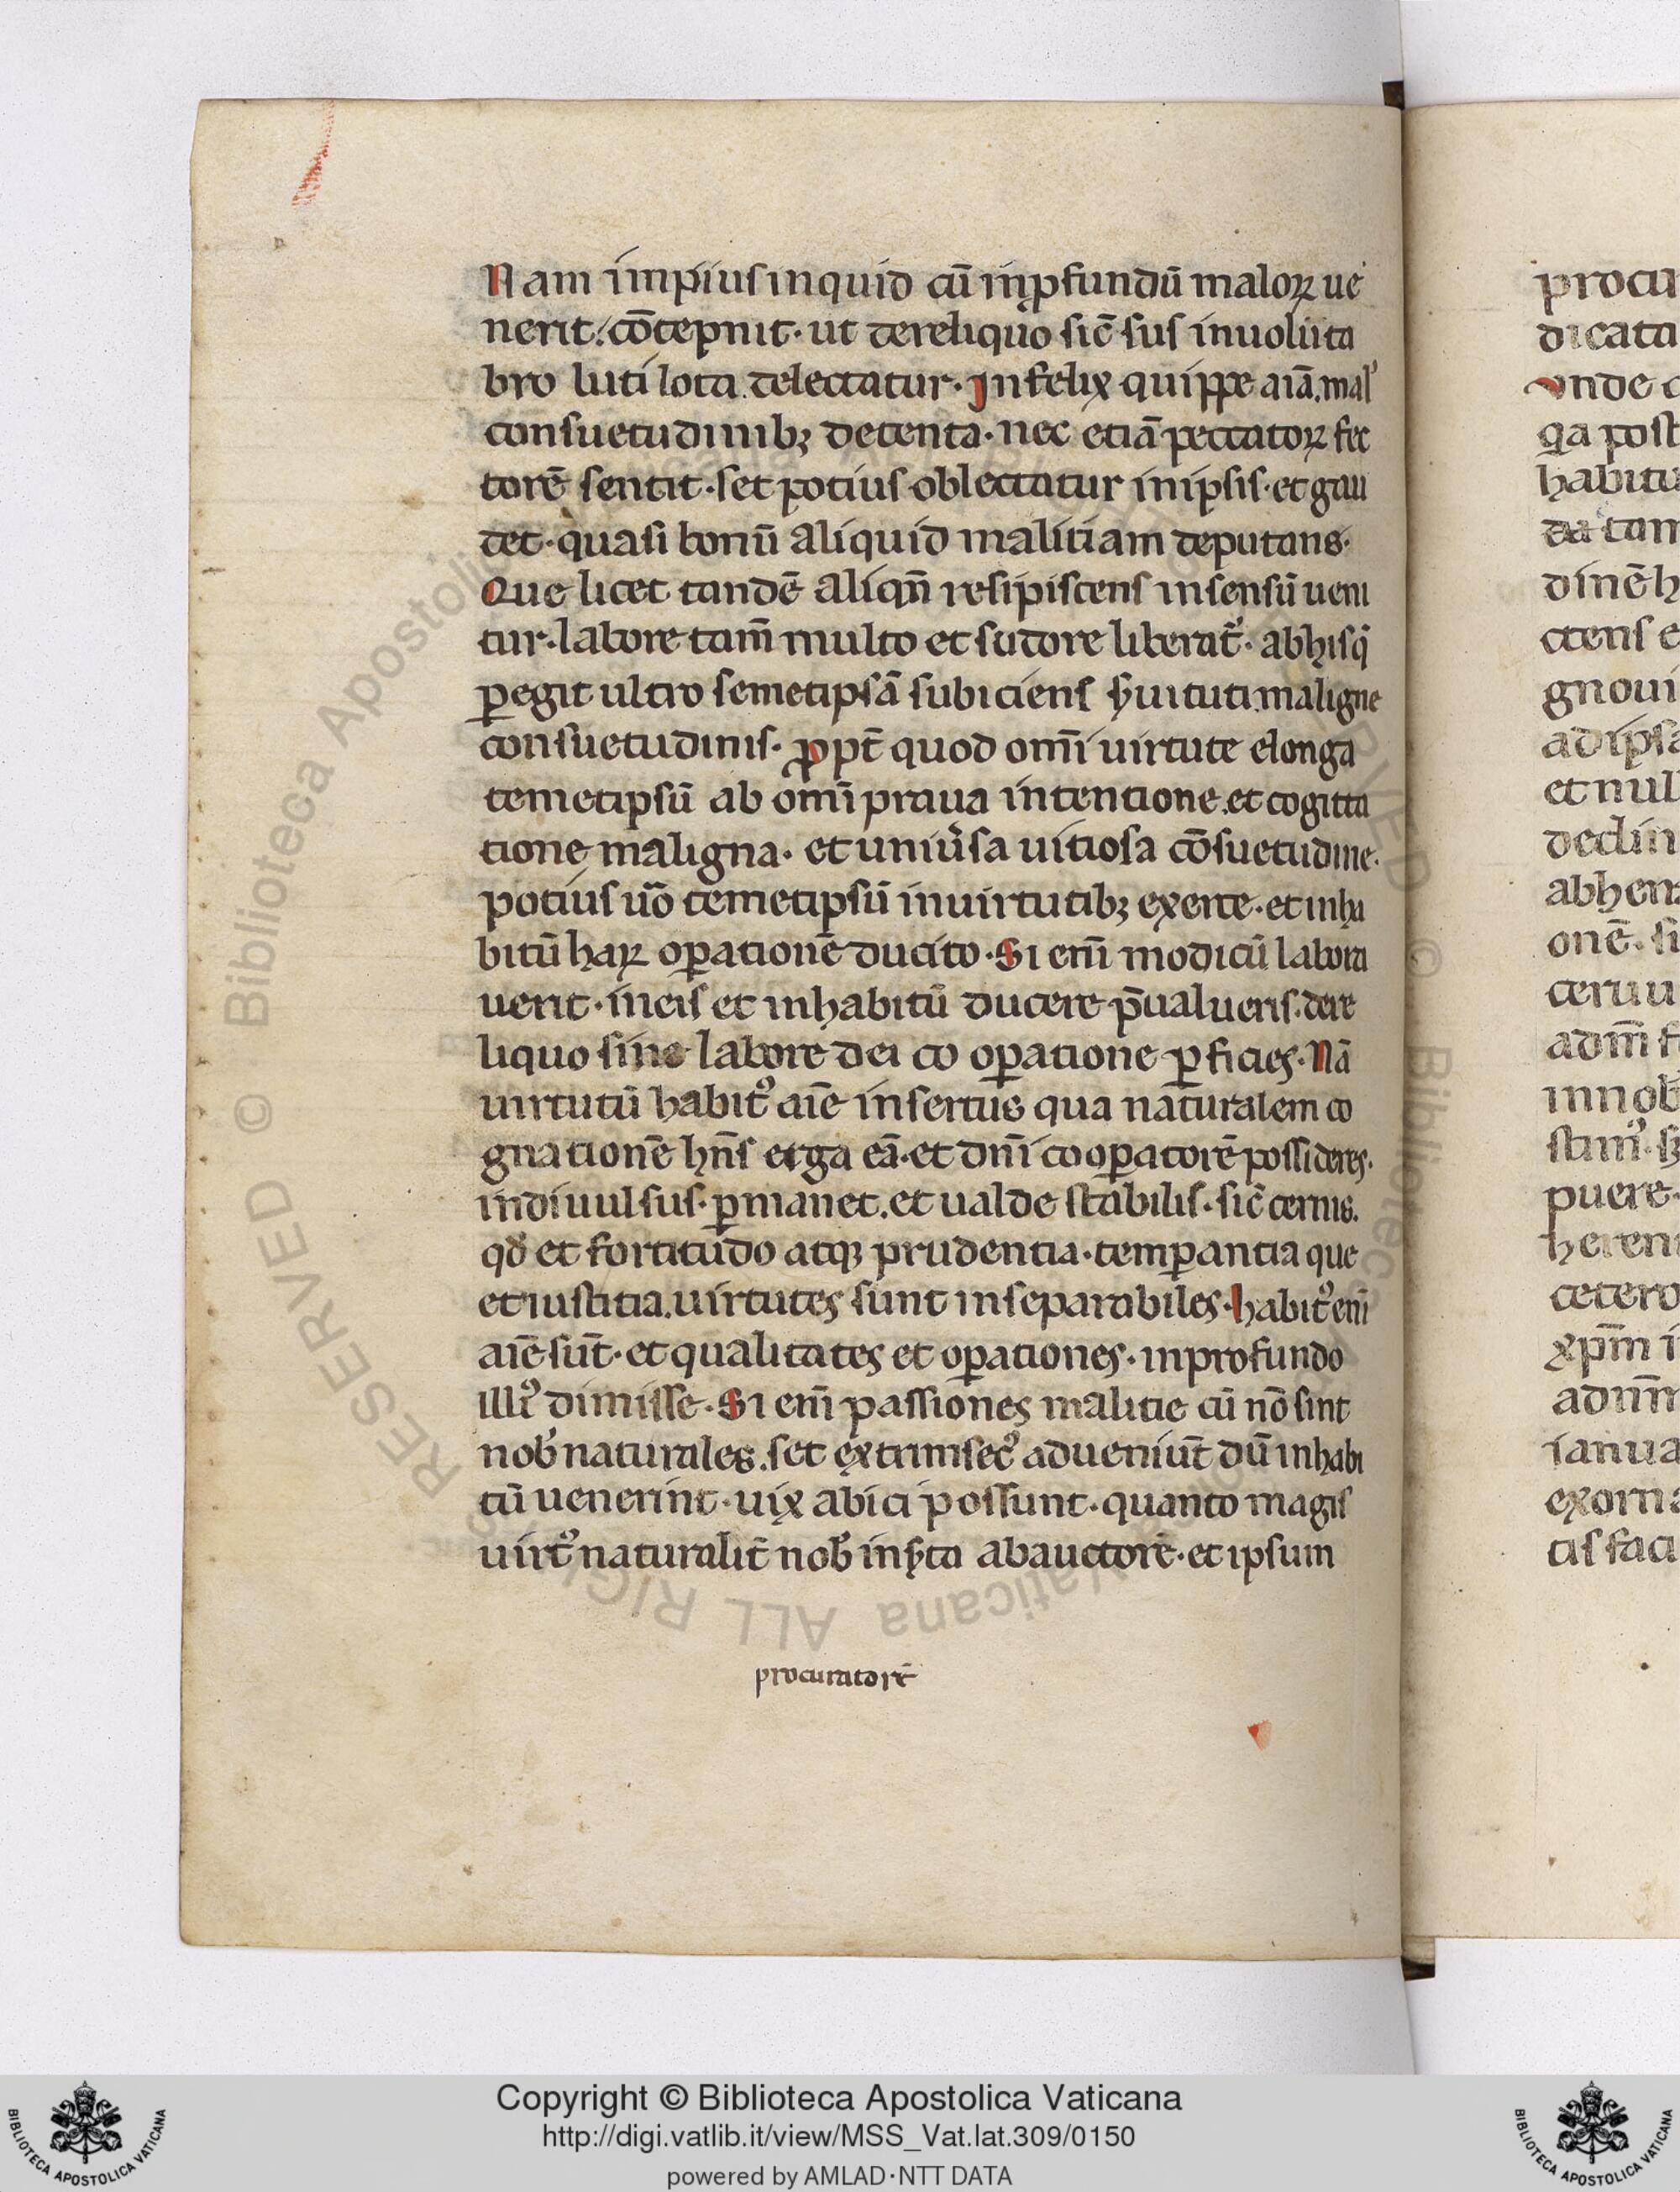 Nam impius inquid cū inꝓfundū maloꝝ ue
nerit: cōtepnit· ut dereliquo sic̄ sus inuoluta
bro luti lota. delectatur· Infelix quippe aiā. mal'
consuetudinibꝫ detenta· nec etiā peccatoꝝ fec
torē sentit· set potius oblectatur inipsis· et gau
det· quasi bonū aliquid malitiam deputans·
Que licet tandē aliqn̄ resipiscens insensū ueni
tur· labore tam̄ multo et sudore liberat᷑· abhis q̄
ꝑegit ultro semetipsā subiciens s̄uituti maligne
consuetudinis· ꝓpt̄ quod omī uirtute elonga
temetipsū ab omī praua intentione. et cogitta
tione maligna· et uniu̓sa uitiosa cōsuetudine·
potius ūo temetipsū inuirtutibꝫ exerce· et inha
bitū haꝝ oꝑationē ducito· Si enī modicū labora
uerit· ineis et inhabitū ducere p̄ualueris. dere
liquo sine labore dei co oꝑatione ꝑficies· Nā
uirtutū habitꝰ aīe insertus qua naturalem co
gnationē hn̄s erga eā· et dnī cooꝑatorē possideres·
indiuulsus· ꝑmanet. et ualde stabilis· sic̄ cernis.
qđ et fortitudo atqꝫ prudentia· temꝑantia que
et iustitia. uirtutes sunt inseparabiles· habitꝰ enī
aīe sūt· et qualitates et oꝑationes· inprofundo
illiꝰ dimisse· Si enī passiones malitie cū nō sint
nob̄ naturales. set extrinsecꝰ adueniūt dū inhabi
tū uenerint· uix abici possunt· quanto magis
uirtꝰ naturalit̄ nob̄ ins̄ta abauctore· et ipsum
procuratorē
procu
dicata
Vnde c
qa post
habitu
da tam
dinē h
ctens e
gnoui
adipsa
et nul
declin
abhen
onē· si
ceruu
adm̄ f
innob
stimꝰ· s
puere·
heren
cetero
xpm̄ i
adnm̄
ianua
exorna
tis faci
Copyright © Biblioteca Apostolica Vaticana
http://digi.vatlib.it/view/MSS_Vat.lat.309/0150
powered by AMLAD·NTT DATA
BIBLIOTECA APOSTOLICA VATICANA
BIBLIOTECA APOSTOLICA VATICANA